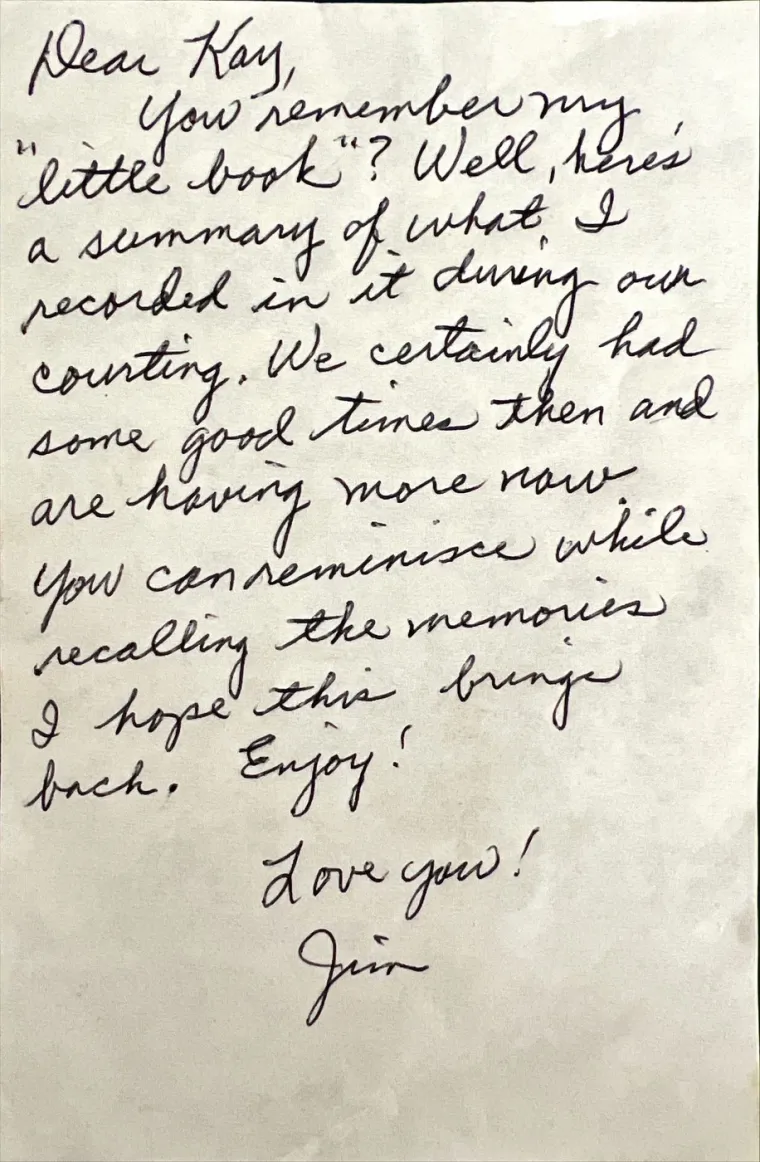 Dear Kay,
You remember my
"little book"? Well, here's
a summary of what I
recorded in it during our
courting. We certainly had
some good times then and
are having more now.
You can reminisce while
recalling the memories
I hope this brings
back. Enjoy!
Love you!
Jim